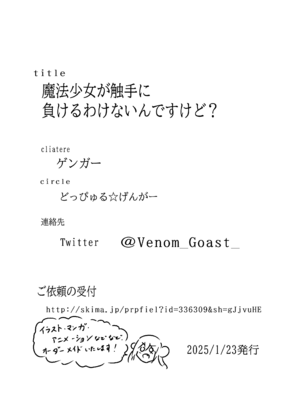 title
魔法少女が触手に
負けるわけないんですけど？
cliatere
ゲンガー
circle
どっぴゅる☆げんがー
連絡先
Twitter　@Venom_Goast_
ご依頼の受付
http://skima.jp/prpfiel?id=336309&sh=gJjvuHE
イラスト・マンガ・
アニメーションなどなど、
オーダーメイドいたします！
2025/1/23発行